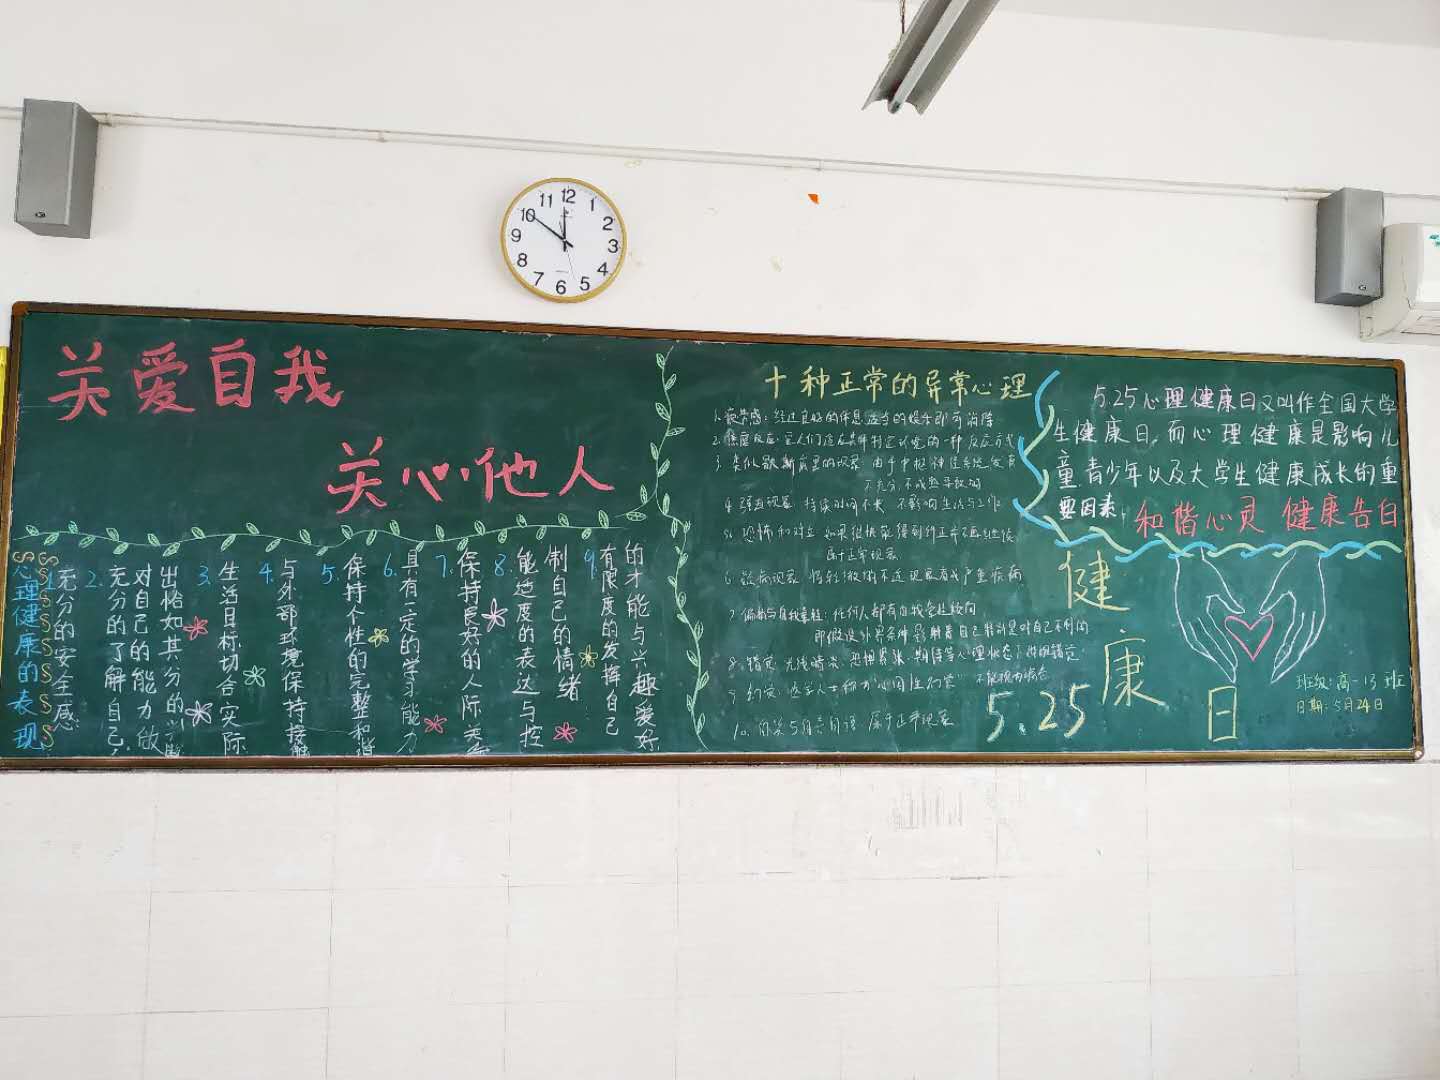 12
1
2
3
4
5
6
7
8
9
10
11
关爱自我
关心他人
心理健康的表现
1.充分的安全感
2.充分的了解自己,
对自己的能力做
出恰如其分的判断
3.生活目标切合实际
4.与外部环境保持接触
5.保持个性的完整和谐
6.具有一定的学习能力
7.保持良好的人际关系
8.能适度的表达与控
制自己的情绪
9.有限度的发挥自己
的才能与兴趣爱好
十种正常的异常心理
1.疲劳感:经过良好的休息,适当的娱乐即可消除
3.类似歇斯底里的现象
4.强迫现象:持续时间不长 不影响生活与工作
5.恐怖和对立
属于正常现象
6.疑病现象
7.偏执与自我牵挂:任何人都有自我牵挂倾向,
即假设外界条件影射着自己特别是对自己不利的
8.错觉
9.幻觉
10.自笑与自言自语 属于正常现象
5.25心理健康日又叫作全国大学
生健康日,而心理健康是影响儿
童,青少年以及大学生健康成长的重
要因素,
和谐心灵 健康告白
健康日
5.25
班级:高一13班
日期:5月24日